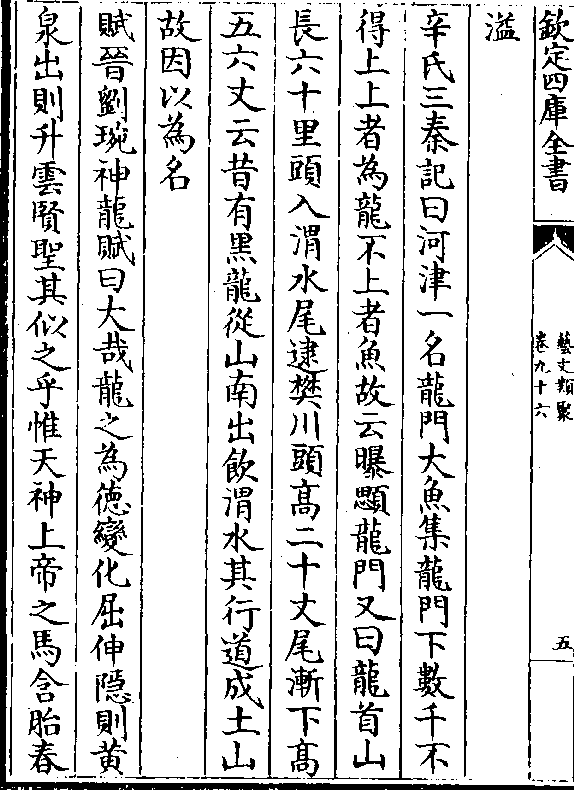 欽定四庫全書
藝文類聚
卷九十六
五
溢
辛氏三秦記曰河津一名龍門大魚集龍門下數千不
得上上者為龍不上者魚故云曝顋龍門又曰龍首山
長六十里頭入渭水尾逮樊川頭高二十丈尾漸下高
五六丈云昔有黑龍從山南出飲渭水其行道成土山
故因以為名
賦晉劉琬神龍賦曰大哉龍之為德變化屈伸隱則黄
泉出則升雲賢聖其似之乎惟天神上帝之馬含胎春